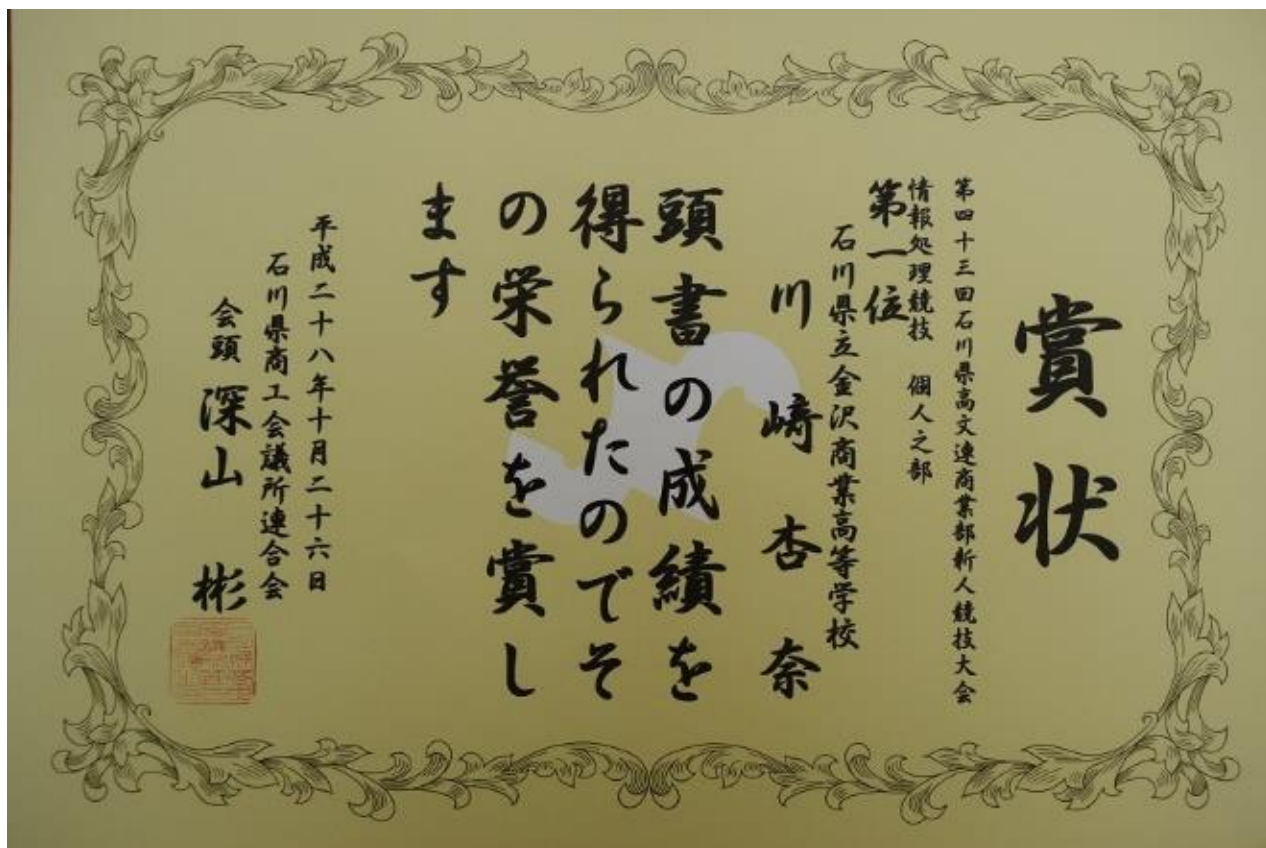 賞状
第四十三回石川県高文連商業部新人競技大会
情報処理競技 個人之部
第一位
石川県立金沢商業高等学校
川崎杏奈
頭書の成績を
得られたのでそ
の栄誉を賞し
ます
平成二十八年十月二十六日
石川県商工会議所連合会
会頭 深山 彬